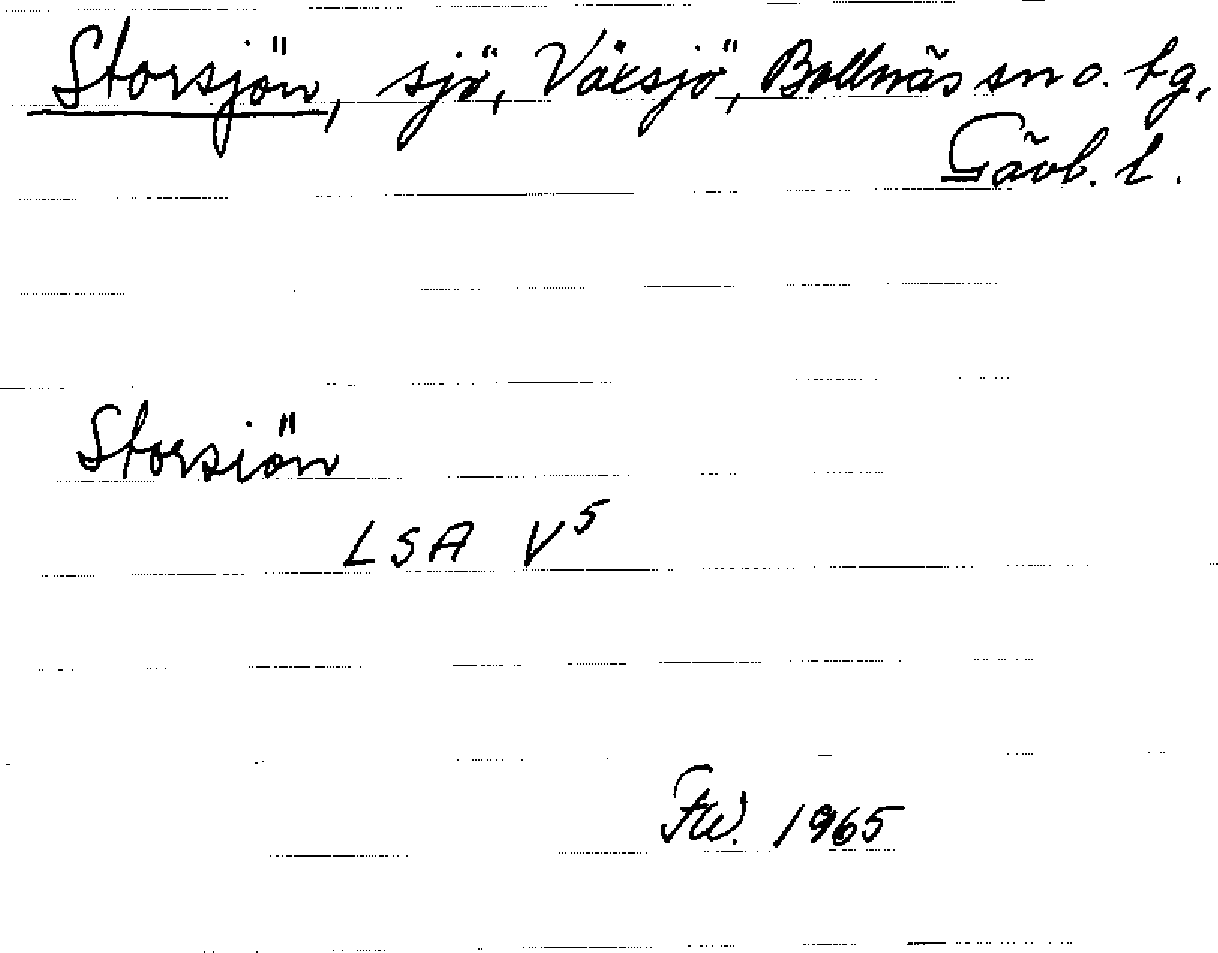 Storsjön, sjö, Växsjö, Bollnäs sn o. tg,
Gävb. l.
Storsiön
LSA V⁵
FW. 1965